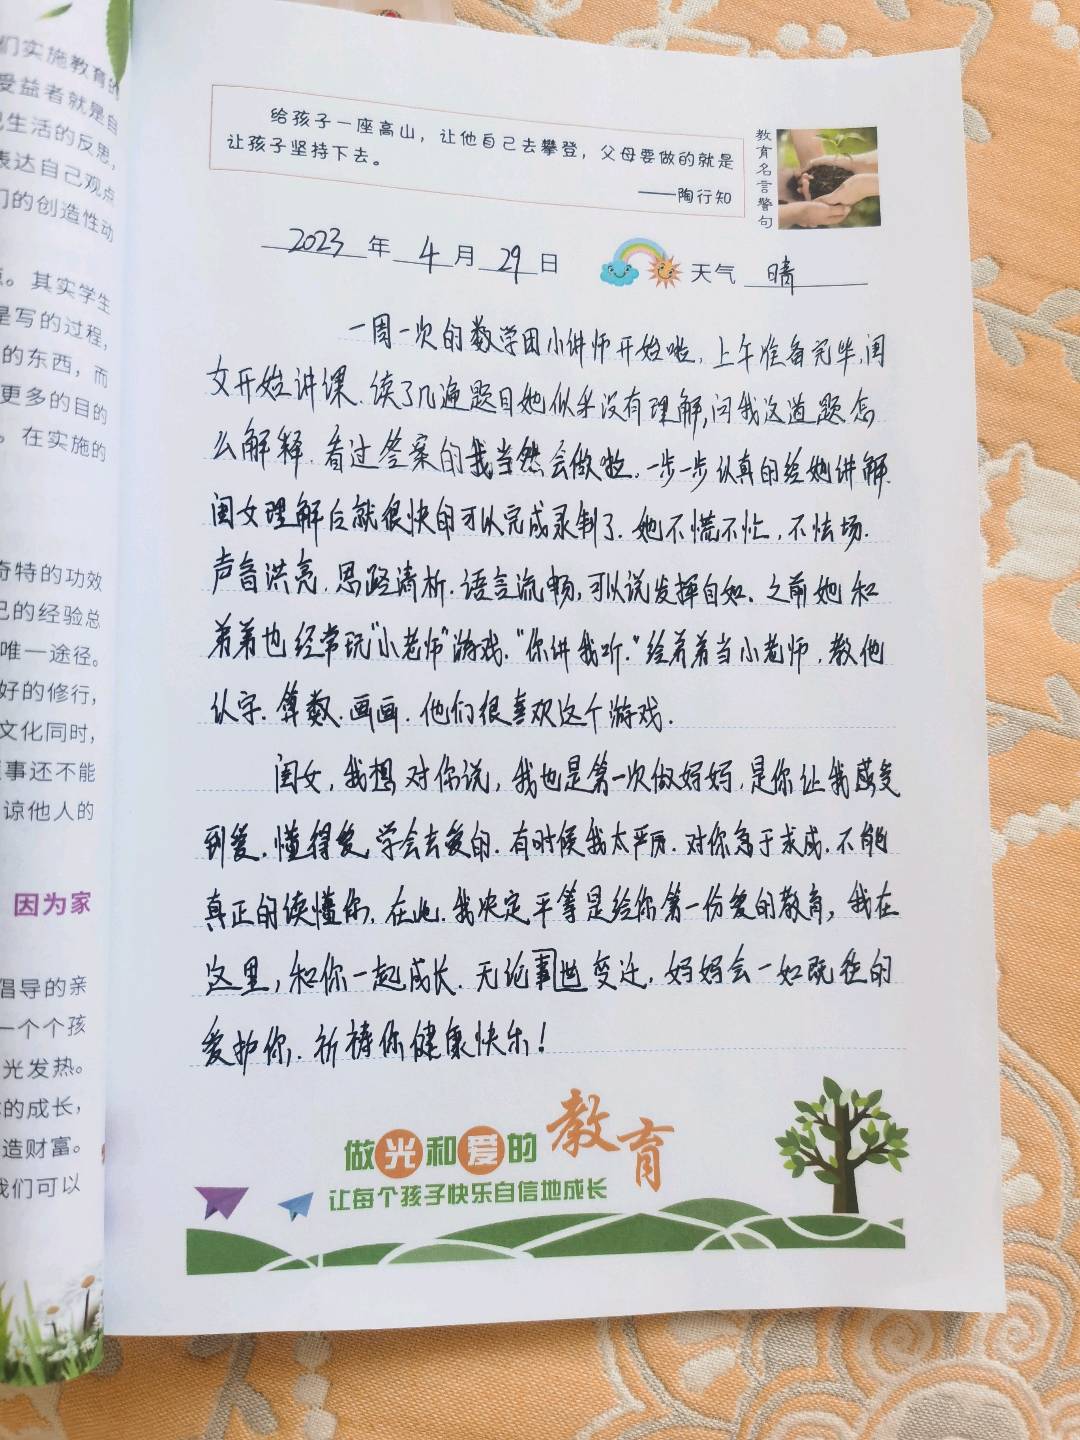 们实施教育的
受益者就是自
己生活的反思，
表达自己观点
们的创造性动
点。其实学生
是写的过程，
的东西，而
更多的目的
。在实施的
奇特的功效
己的经验总
唯一途径。
好的修行，
文化同时，
事还不能
谅他人的
因为家
倡导的亲
一个个孩
光发热。
的成长，
造财富。
我们可以
给孩子一座高山，让他自己去攀登，父母要做的就是
让孩子坚持下去。
——陶行知
教育名言警句
2023年4月29日 天气 晴
一周一次的数学团小讲师开始啦，上午准备完毕，闺
女开始讲课．读了几遍题目她似乎没有理解，问我这道题怎
么解释．看过答案的我当然会做啦．一步一步认真的给她讲解．
闺女理解后就很快的可以完成录制了．她不慌不忙，不怯场．
声音洪亮．思路清析．语言流畅，可以说发挥自如．之前她和
弟弟也经常玩“小老师”游戏．“你讲我听．”给弟弟当小老师，教他
认字．算数．画画．他们很喜欢这个游戏．
闺女，我想对你说，我也是第一次做妈妈，是你让我感受
到爱．懂得爱．学会去爱的．有时候我太严厉．对你急于求成．不能
真正的读懂你．在此．我决定平等是给你第一份爱的教育，我在
这里，和你一起成长．无论事世变迁．妈妈会一如既往的
爱护你．祈祷你健康快乐！
做光和爱的教育
让每个孩子快乐自信地成长